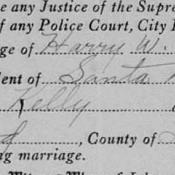 e any Justice of the Supre
of any Police Court, City
ge of Harry W.
ent of Santa
Kelly
, County of
ng marriage.